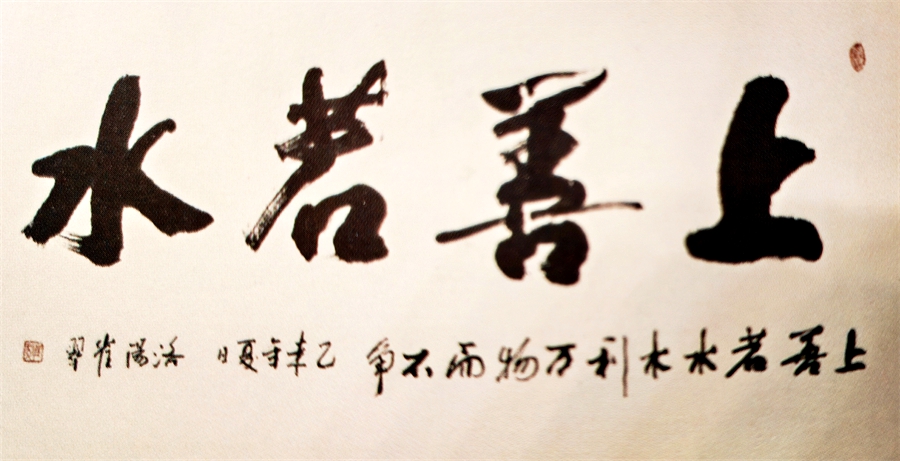 上善若水
上善若水水利万物而不争 乙未年夏日 洛阳崔